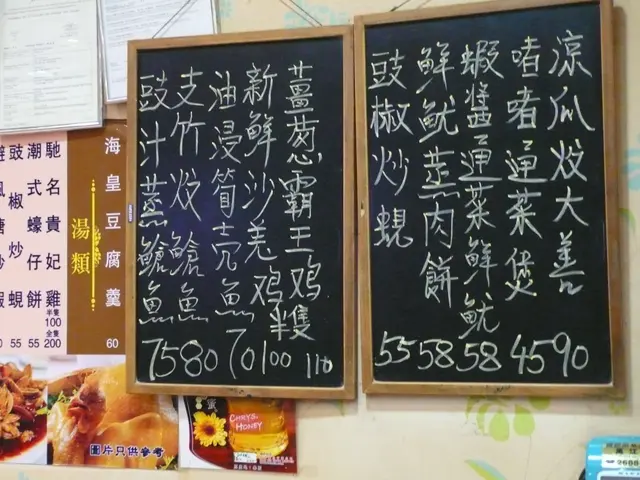 涼瓜炆大善 90
啫啫通菜煲 45
蝦醬通菜鮮魷 58
鮮魷蒸肉餅 58
豉椒炒蜆 55
薑葱霸王鸡半隻 110
新鮮沙羗鸡 100
油浸筍壳魚 70
支竹炆鱠魚 80
豉汁蒸鱠魚 75
海皇豆腐羹 60
湯類
馳名貴妃雞 半隻 100 全隻 200
潮式蠔仔餅 55
豉椒炒蜆 55
圖片只供參考
CHRYS.
HONEY